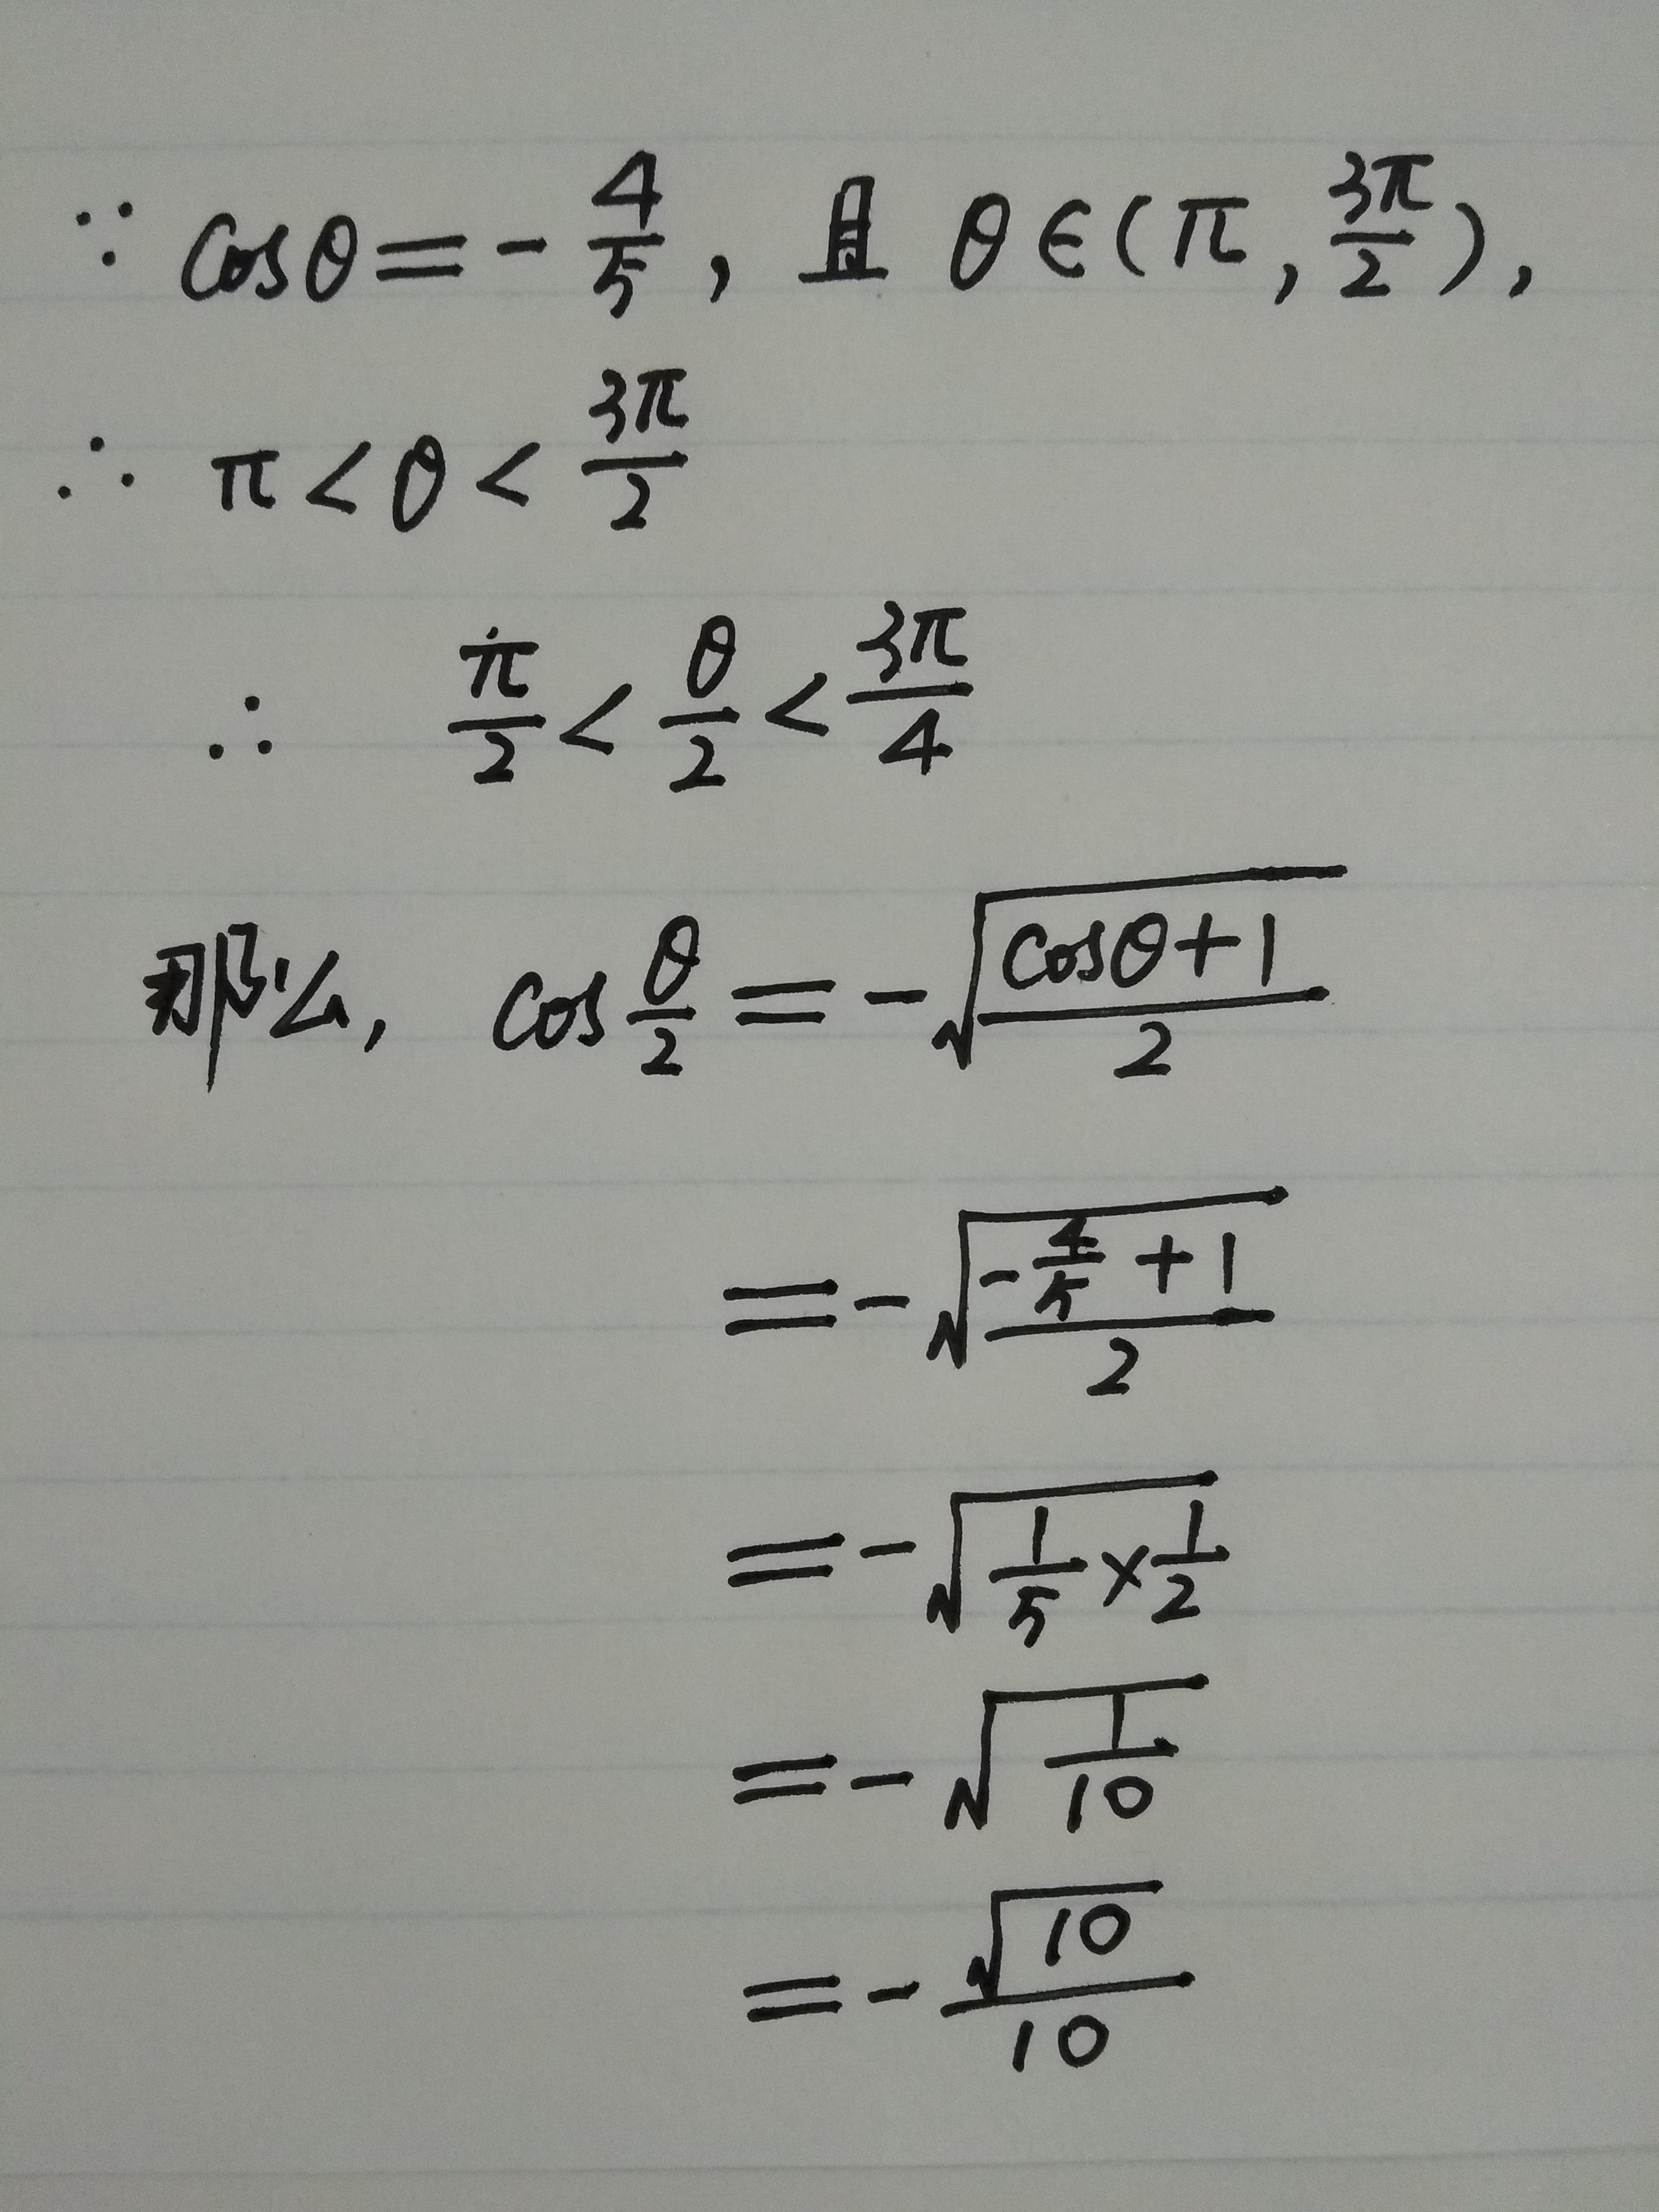 ∵ cosθ = -4/5, 且 θ∈(π, 3π/2),
∴ π < θ < 3π/2
∴ π/2 < θ/2 < 3π/4
那么, cos θ/2 = -√((cosθ+1)/2)
= -√((-4/5+1)/2)
= -√(1/5×1/2)
= -√(1/10)
= -√10/10